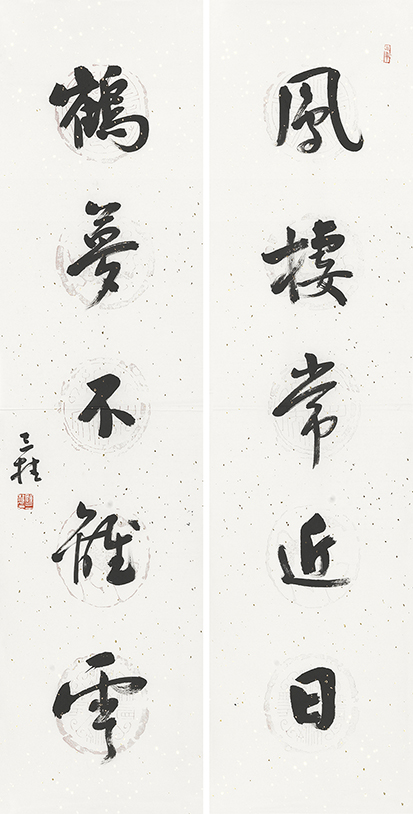 鳳樓常近日
鶴夢不離雲
三桂